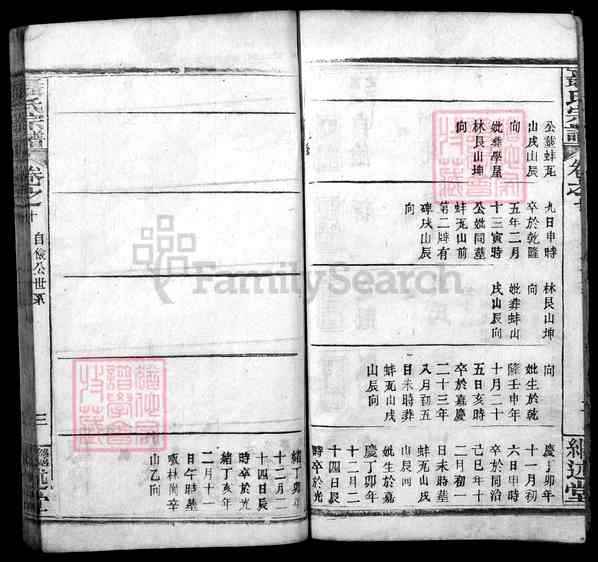 氏宗譜
卷之十
繼述堂
公葬蚌瓦
山戌山辰
向
妣葬學屋
林艮山坤
向
九日申時
卒於乾隆
五年二月
十三寅時
公妣同墓
蚌瓦山前
第二墀有
碑戌山辰
向
林艮山坤
向
妣葬蚌山
戌山辰向
向
妣生於乾
隆壬申年
十月二十
五日亥時
卒於嘉慶
二十三年
八月初五
日未時葬
蚌瓦山戌
山辰向
慶丁卯年
十一月初
六日申時
卒於同治
己巳年十
二月初一
日未時墓
蚌瓦山戌
山辰向
妣生於嘉
慶丁卯年
十二月二
十四日辰
時卒於光
緒丁卯年
十二月二
十四日辰
時卒於光
緒丁亥年
二月十一
日午時墓
林尚辛
山乙向
氏宗譜
卷之十
自儉公世系
三
述堂
FamilySearch